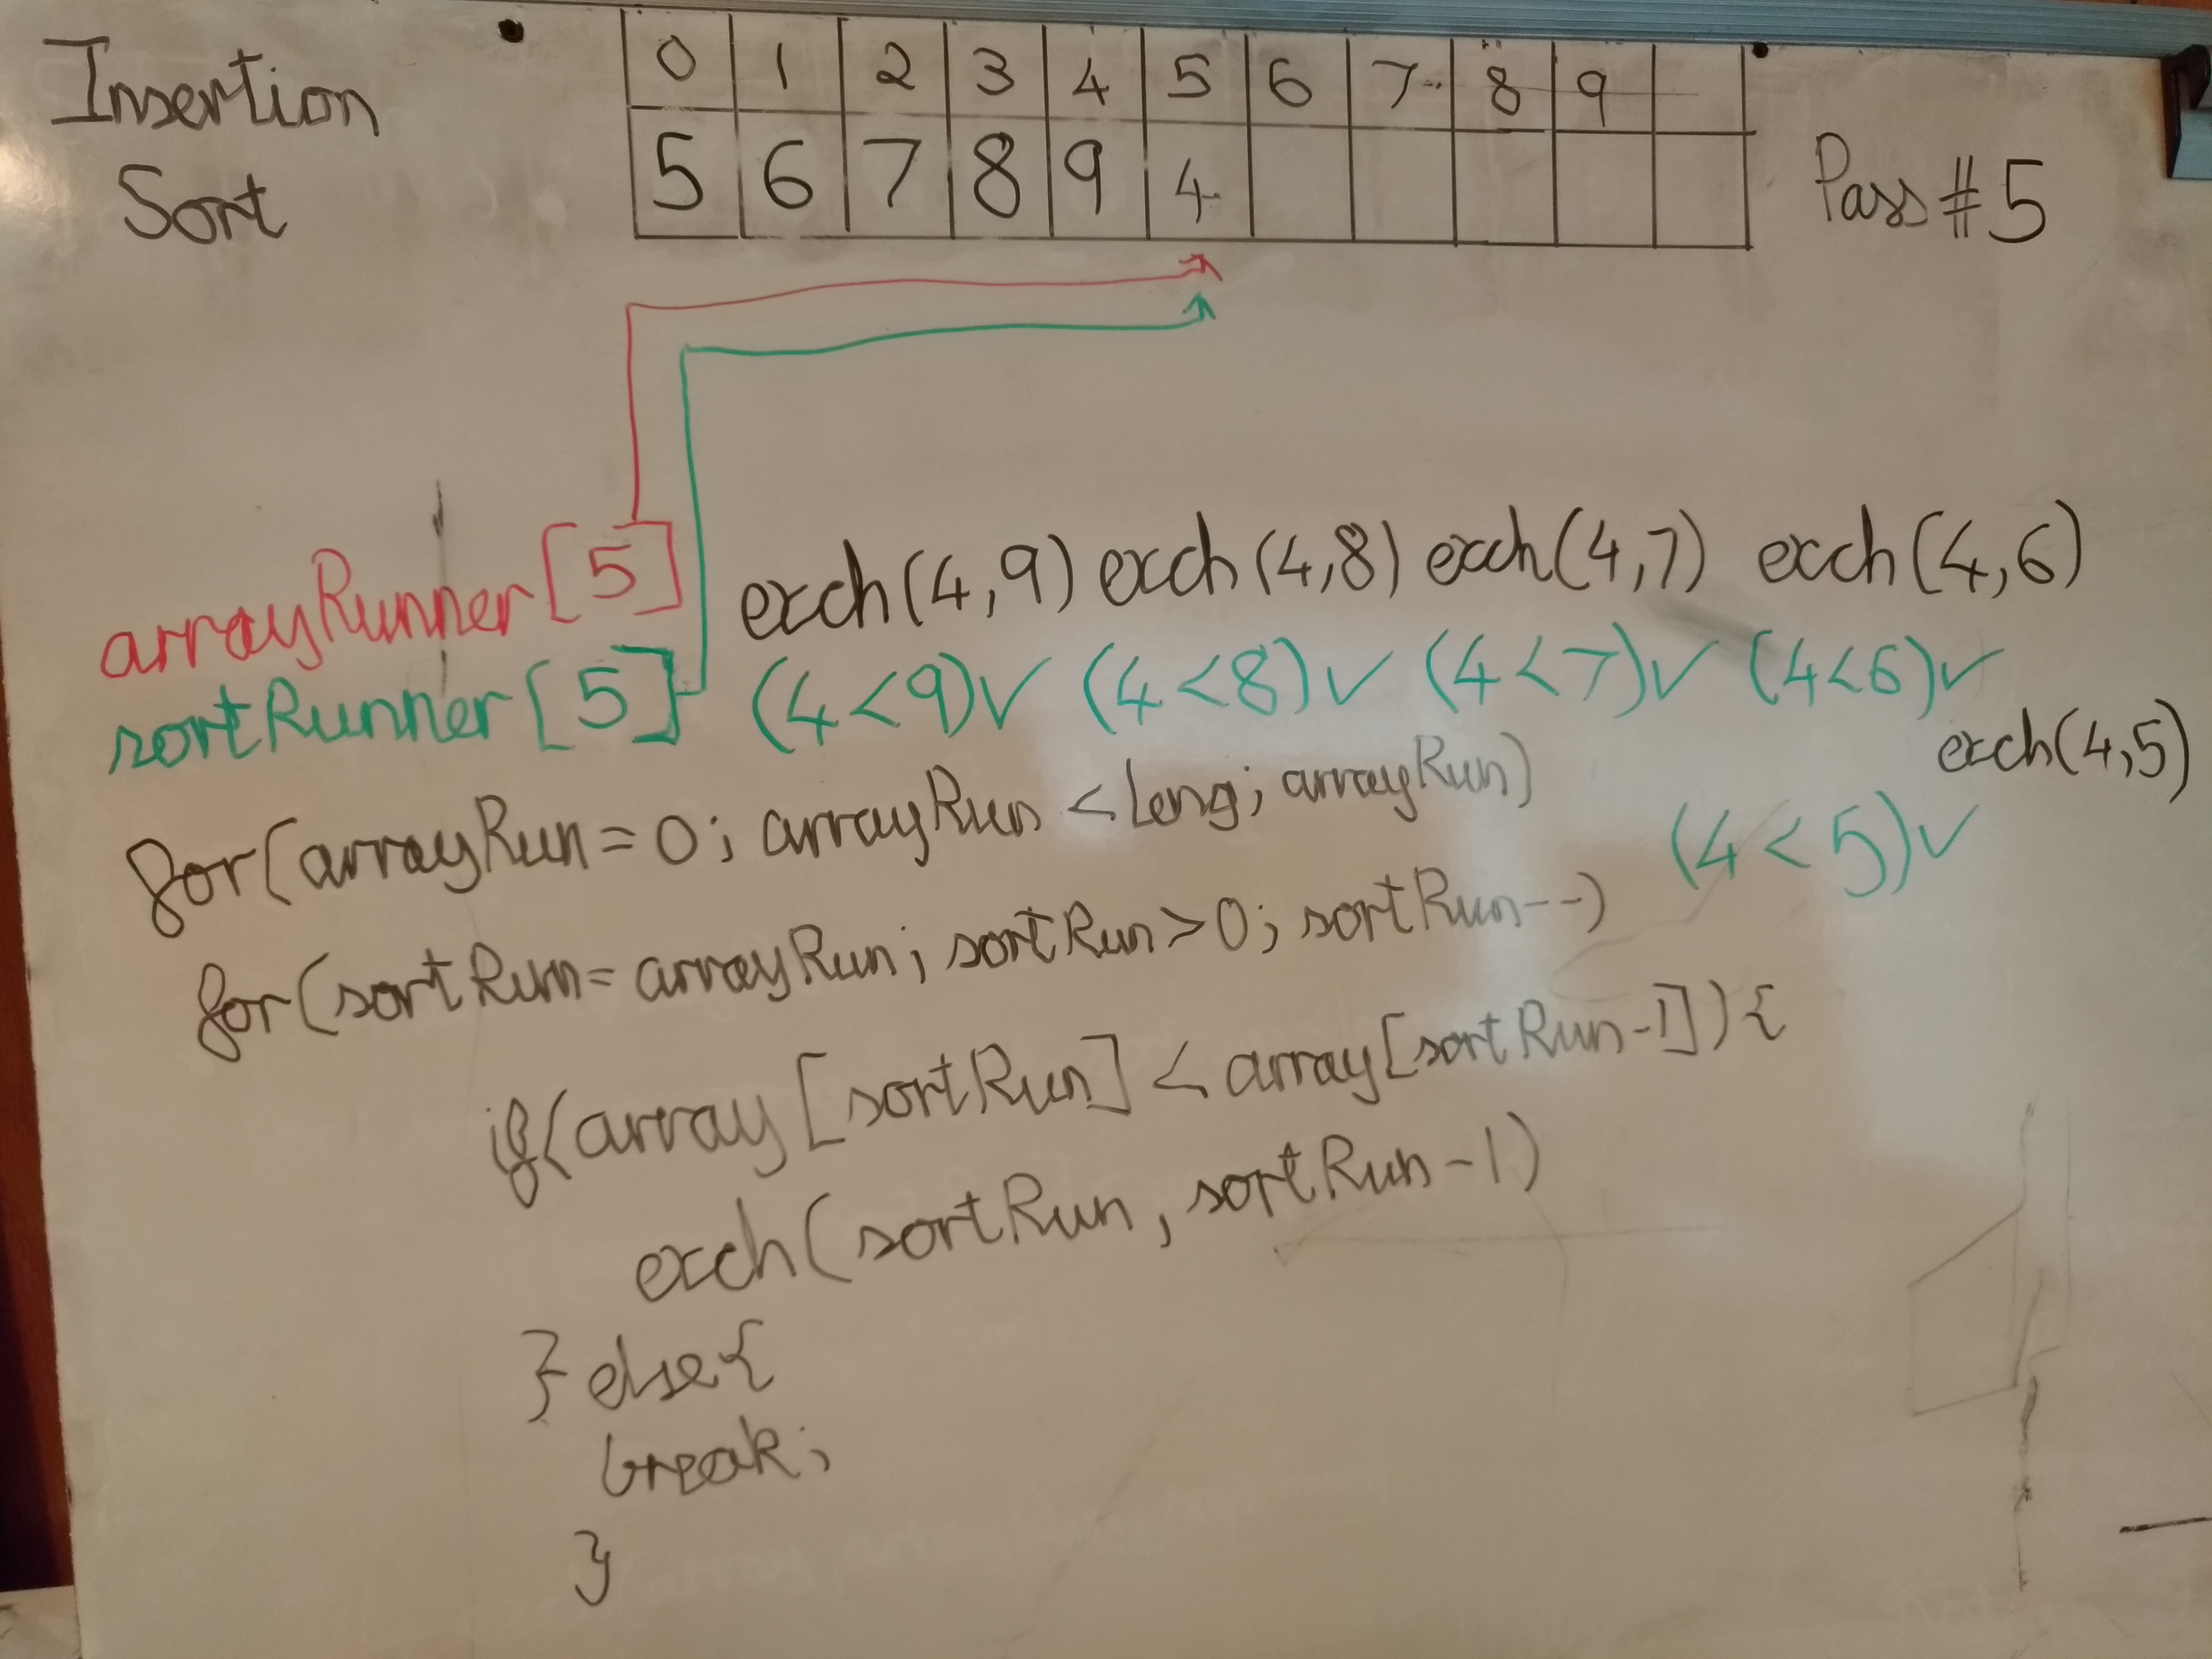 Insertion
Sort
0 1 2 3 4 5 6 7 8 9
5 6 7 8 9 4
Pass #5
arrayRunner[5]
exch(4,9) exch(4,8) exch(4,7) exch(4,6)
sortRunner[5]
(4<9)✓ (4<8)✓ (4<7)✓ (4<6)✓
exch(4,5)
(4<5)✓
for(arrayRun=0; arrayRun<leng; arrayRun)
for(sortRun=arrayRun; sortRun>0; sortRun--)
if(array[sortRun]<array[sortRun-1]){
exch(sortRun, sortRun-1)
} else{
break;
}